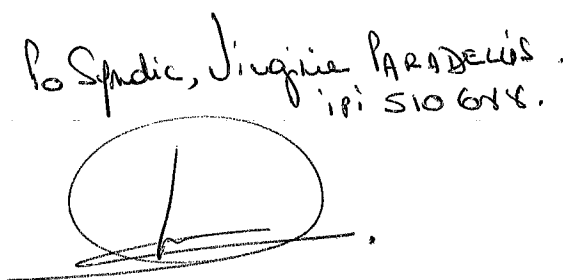 Po Syndic, Virginie PARADELLIS.
ipi 510688.